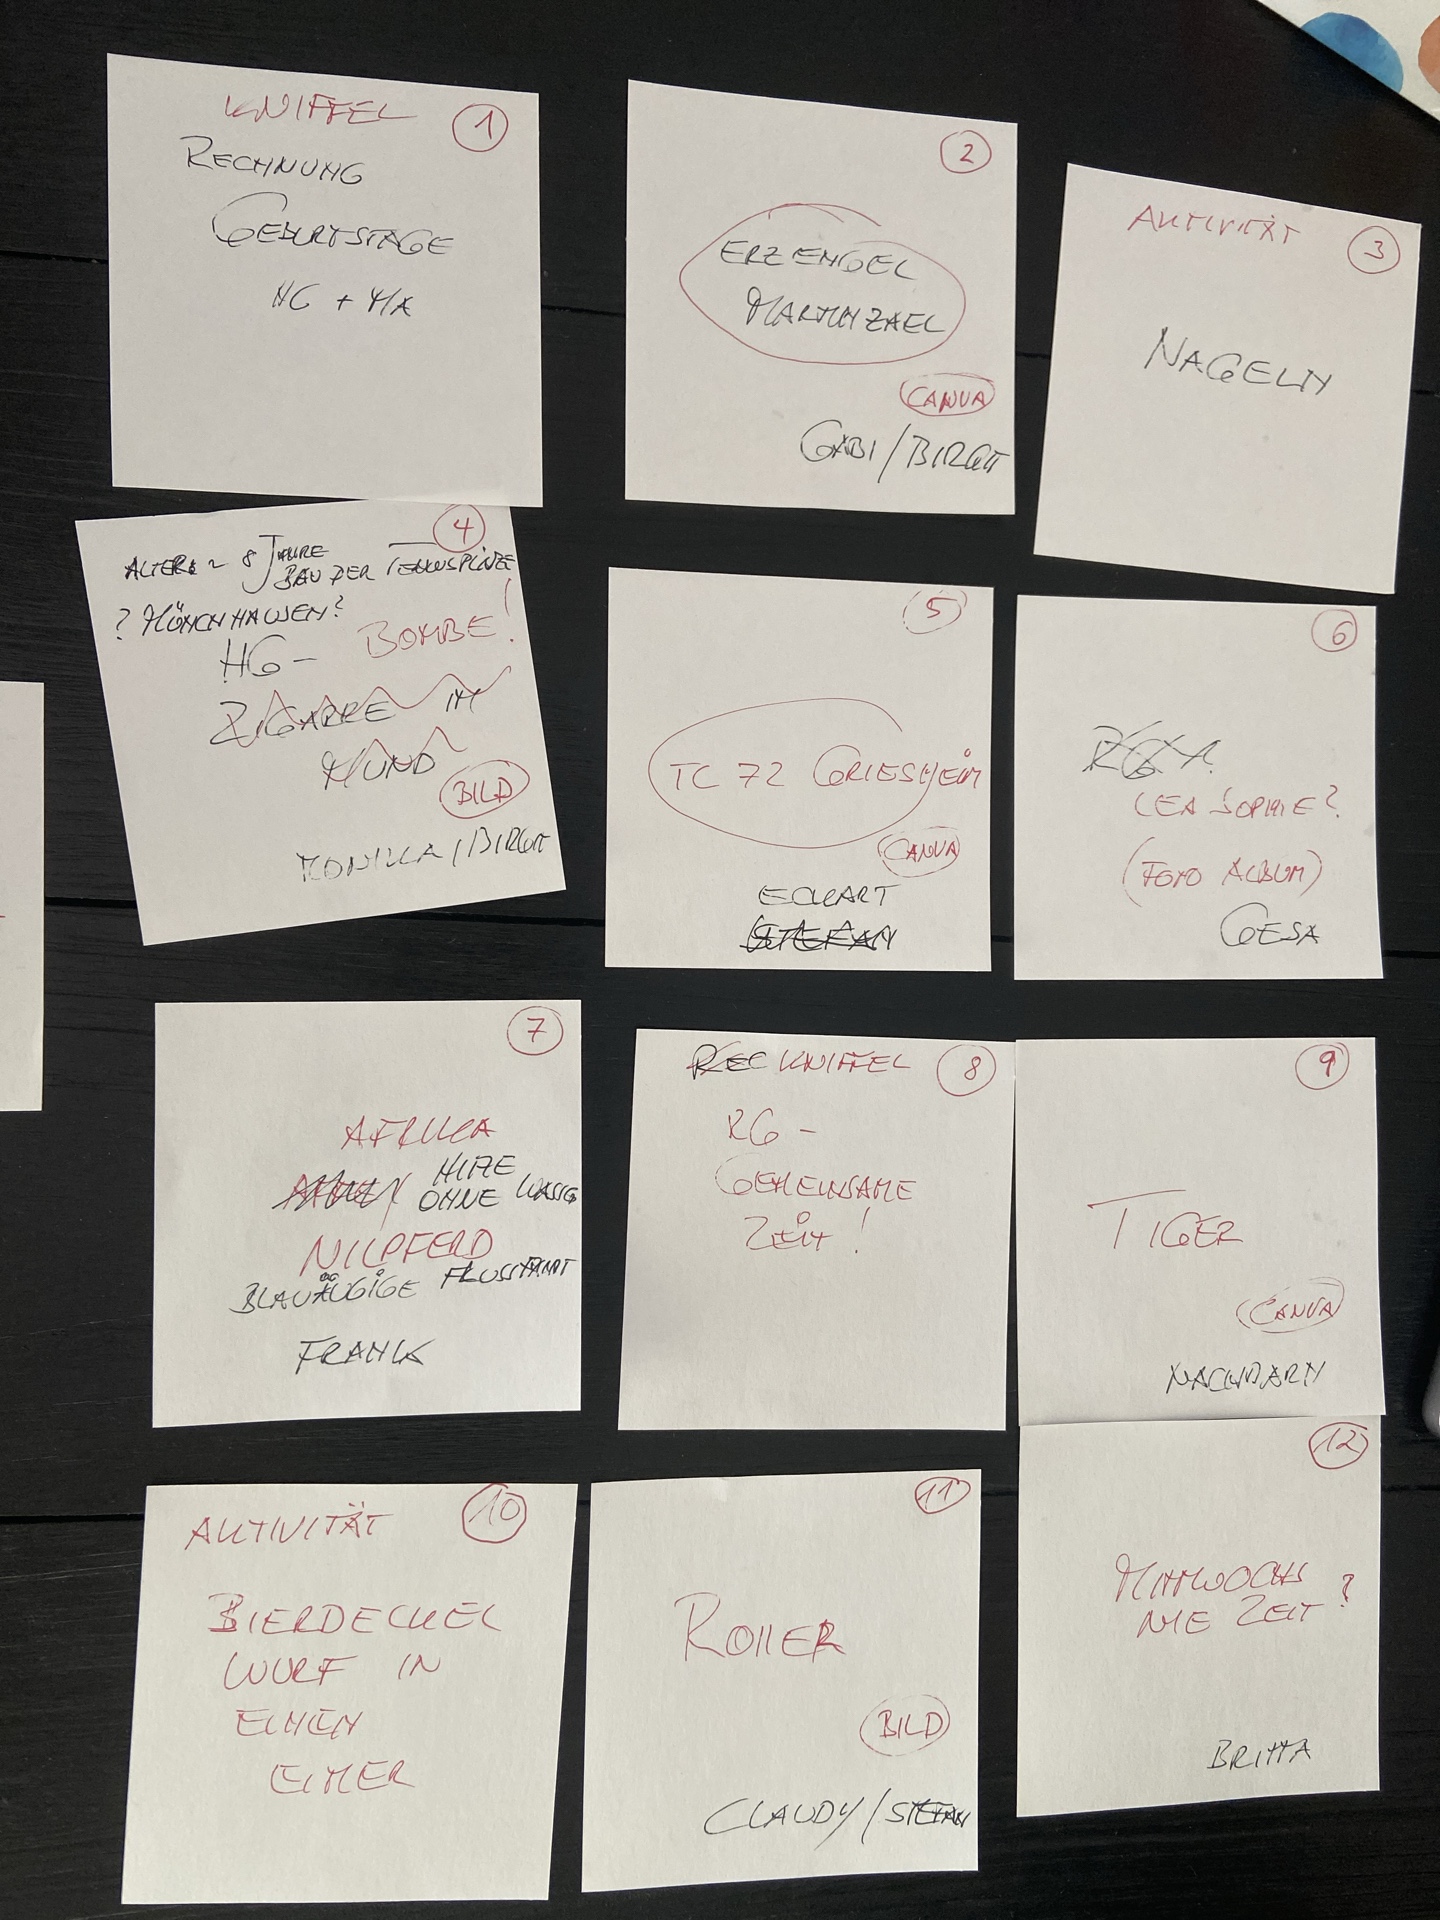 KNIFFEL
1
RECHNUNG
GEBURTSTAGE
HG + MA
2
ERZENGEL
MARTINZAEL
CANVA
GABI / BIRGIT
AKTIVITÄT
3
NAGELN
4
ALTER ~ 8 JAHRE
BAU DER TENNISPLÄTZE
? MÖNCHHAUSEN?
BOMBE!
HG -
ZIGARRE IM
MUND
BILD
MONIKA / BIRGIT
5
TC 72 GRIESHEIM
CANVA
ECKART
STEFAN
6
LEA SOPHIE?
(FOTO ALBUM)
GESA
7
AFRIKA
HITZE
OHNE
NILPFERD
BLAUÄUGIGE FLUSSFAHRT
FRANK
REC KNIFFEL
8
RG -
GEMEINSAME
ZEIT!
9
TIGER
CANVA
NACHBARN
AKTIVITÄT
10
BIERDECKEL
WURF IN
EINEN
EIMER
11
ROLLER
BILD
CLAUDY / STEFAN
12
MITTWOCHS
NIE ZEIT?
BRITTA